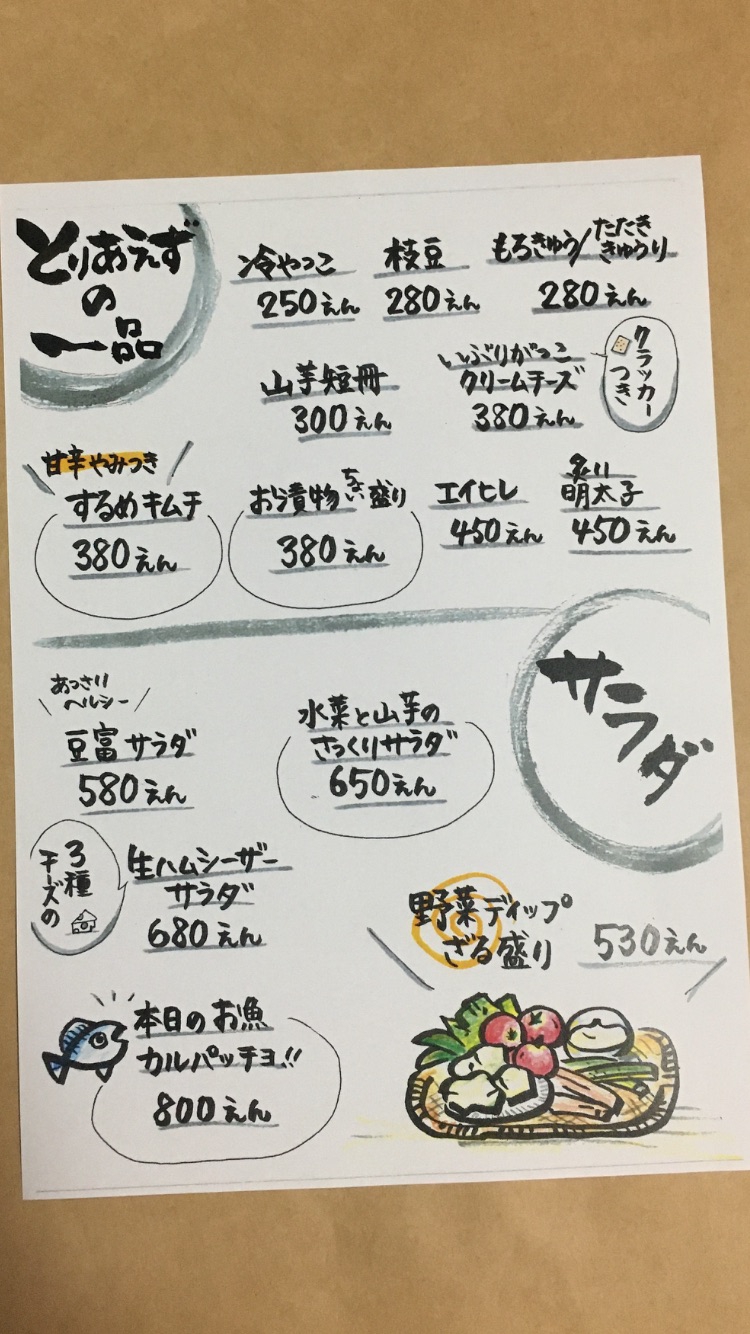 とりあえず
の
一品
冷やっこ
250えん
枝豆
280えん
もろきゅう/たたき
きゅうり
280えん
山芋短冊
300えん
いぶりがっこ
クリームチーズ
380えん
クラッカー
つき
甘辛やみつき
するめキムチ
380えん
お漬物ちょい盛り
380えん
エイヒレ
450えん
炙り
明太子
450えん
サラダ
あっさり
ヘルシー
豆富サラダ
580えん
水菜と山芋の
さっくりサラダ
650えん
3種
チーズの
生ハムシーザー
サラダ
680えん
野菜ディップ
ざる盛り
530えん
本日のお魚
カルパッチョ!!
800えん